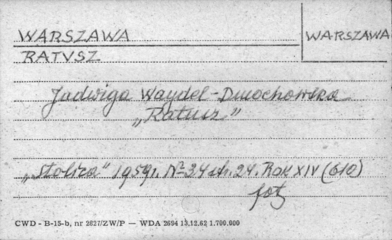 WARSZAWA
WARSZAWA
RATUSZ
Jadwiga Waydel-Dmochowska
„Ratusz"
„Stolica" 1959r. Nº 34 str. 24. Rok XIV (610)
fot
CWD - B-15-b, nr 2827/ZW/P — WDA 2694 13.12.62 1.700.000